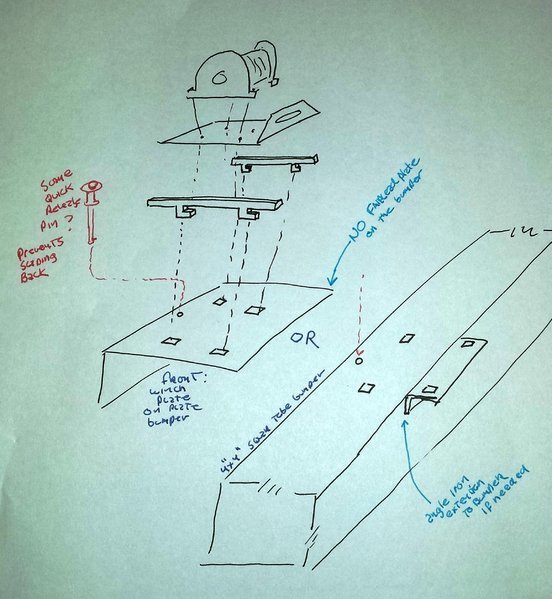 Some
Quick
Release
Pin ?
Prevents
Sliding
Back
NO Fairlead plate
on the bumper
OR
FRONT:
winch
plate
on plate
bumper
4"x4" Square Tube bumper
angle iron
extention
To Bumper
if needed